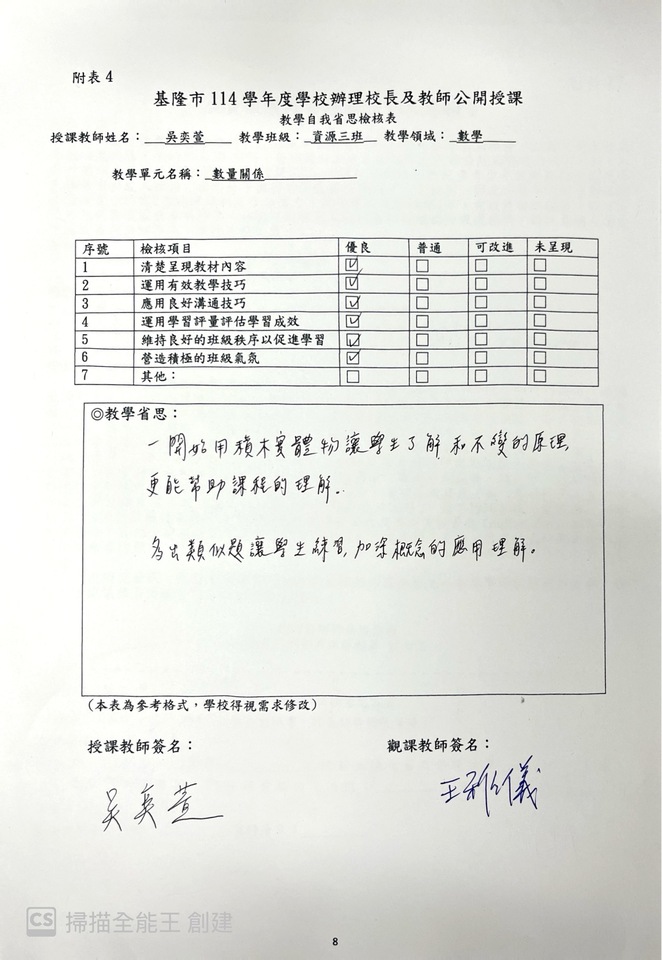 附表 4
基隆市 114 學年度學校辦理校長及教師公開授課
教學自我省思檢核表
授課教師姓名： 吳奕萱 教學班級： 資源三班 教學領域： 數學
教學單元名稱： 數量關係
序號 檢核項目 優良 普通 可改進 未呈現
1 清楚呈現教材內容 ☑ □ □ □
2 運用有效教學技巧 ☑ □ □ □
3 應用良好溝通技巧 ☑ □ □ □
4 運用學習評量評估學習成效 ☑ □ □ □
5 維持良好的班級秩序以促進學習 ☑ □ □ □
6 營造積極的班級氣氛 ☑ □ □ □
7 其他： □ □ □ □
◎教學省思：
一開始用積木實體物讓學生了解 和不變的原理,
更能幫助課程的理解。
多出類似題讓學生練習,加深概念的應用理解。
(本表為參考格式，學校得視需求修改)
授課教師簽名： 觀課教師簽名：
吳奕萱 王雅儀
CS 掃描全能王 創建
8